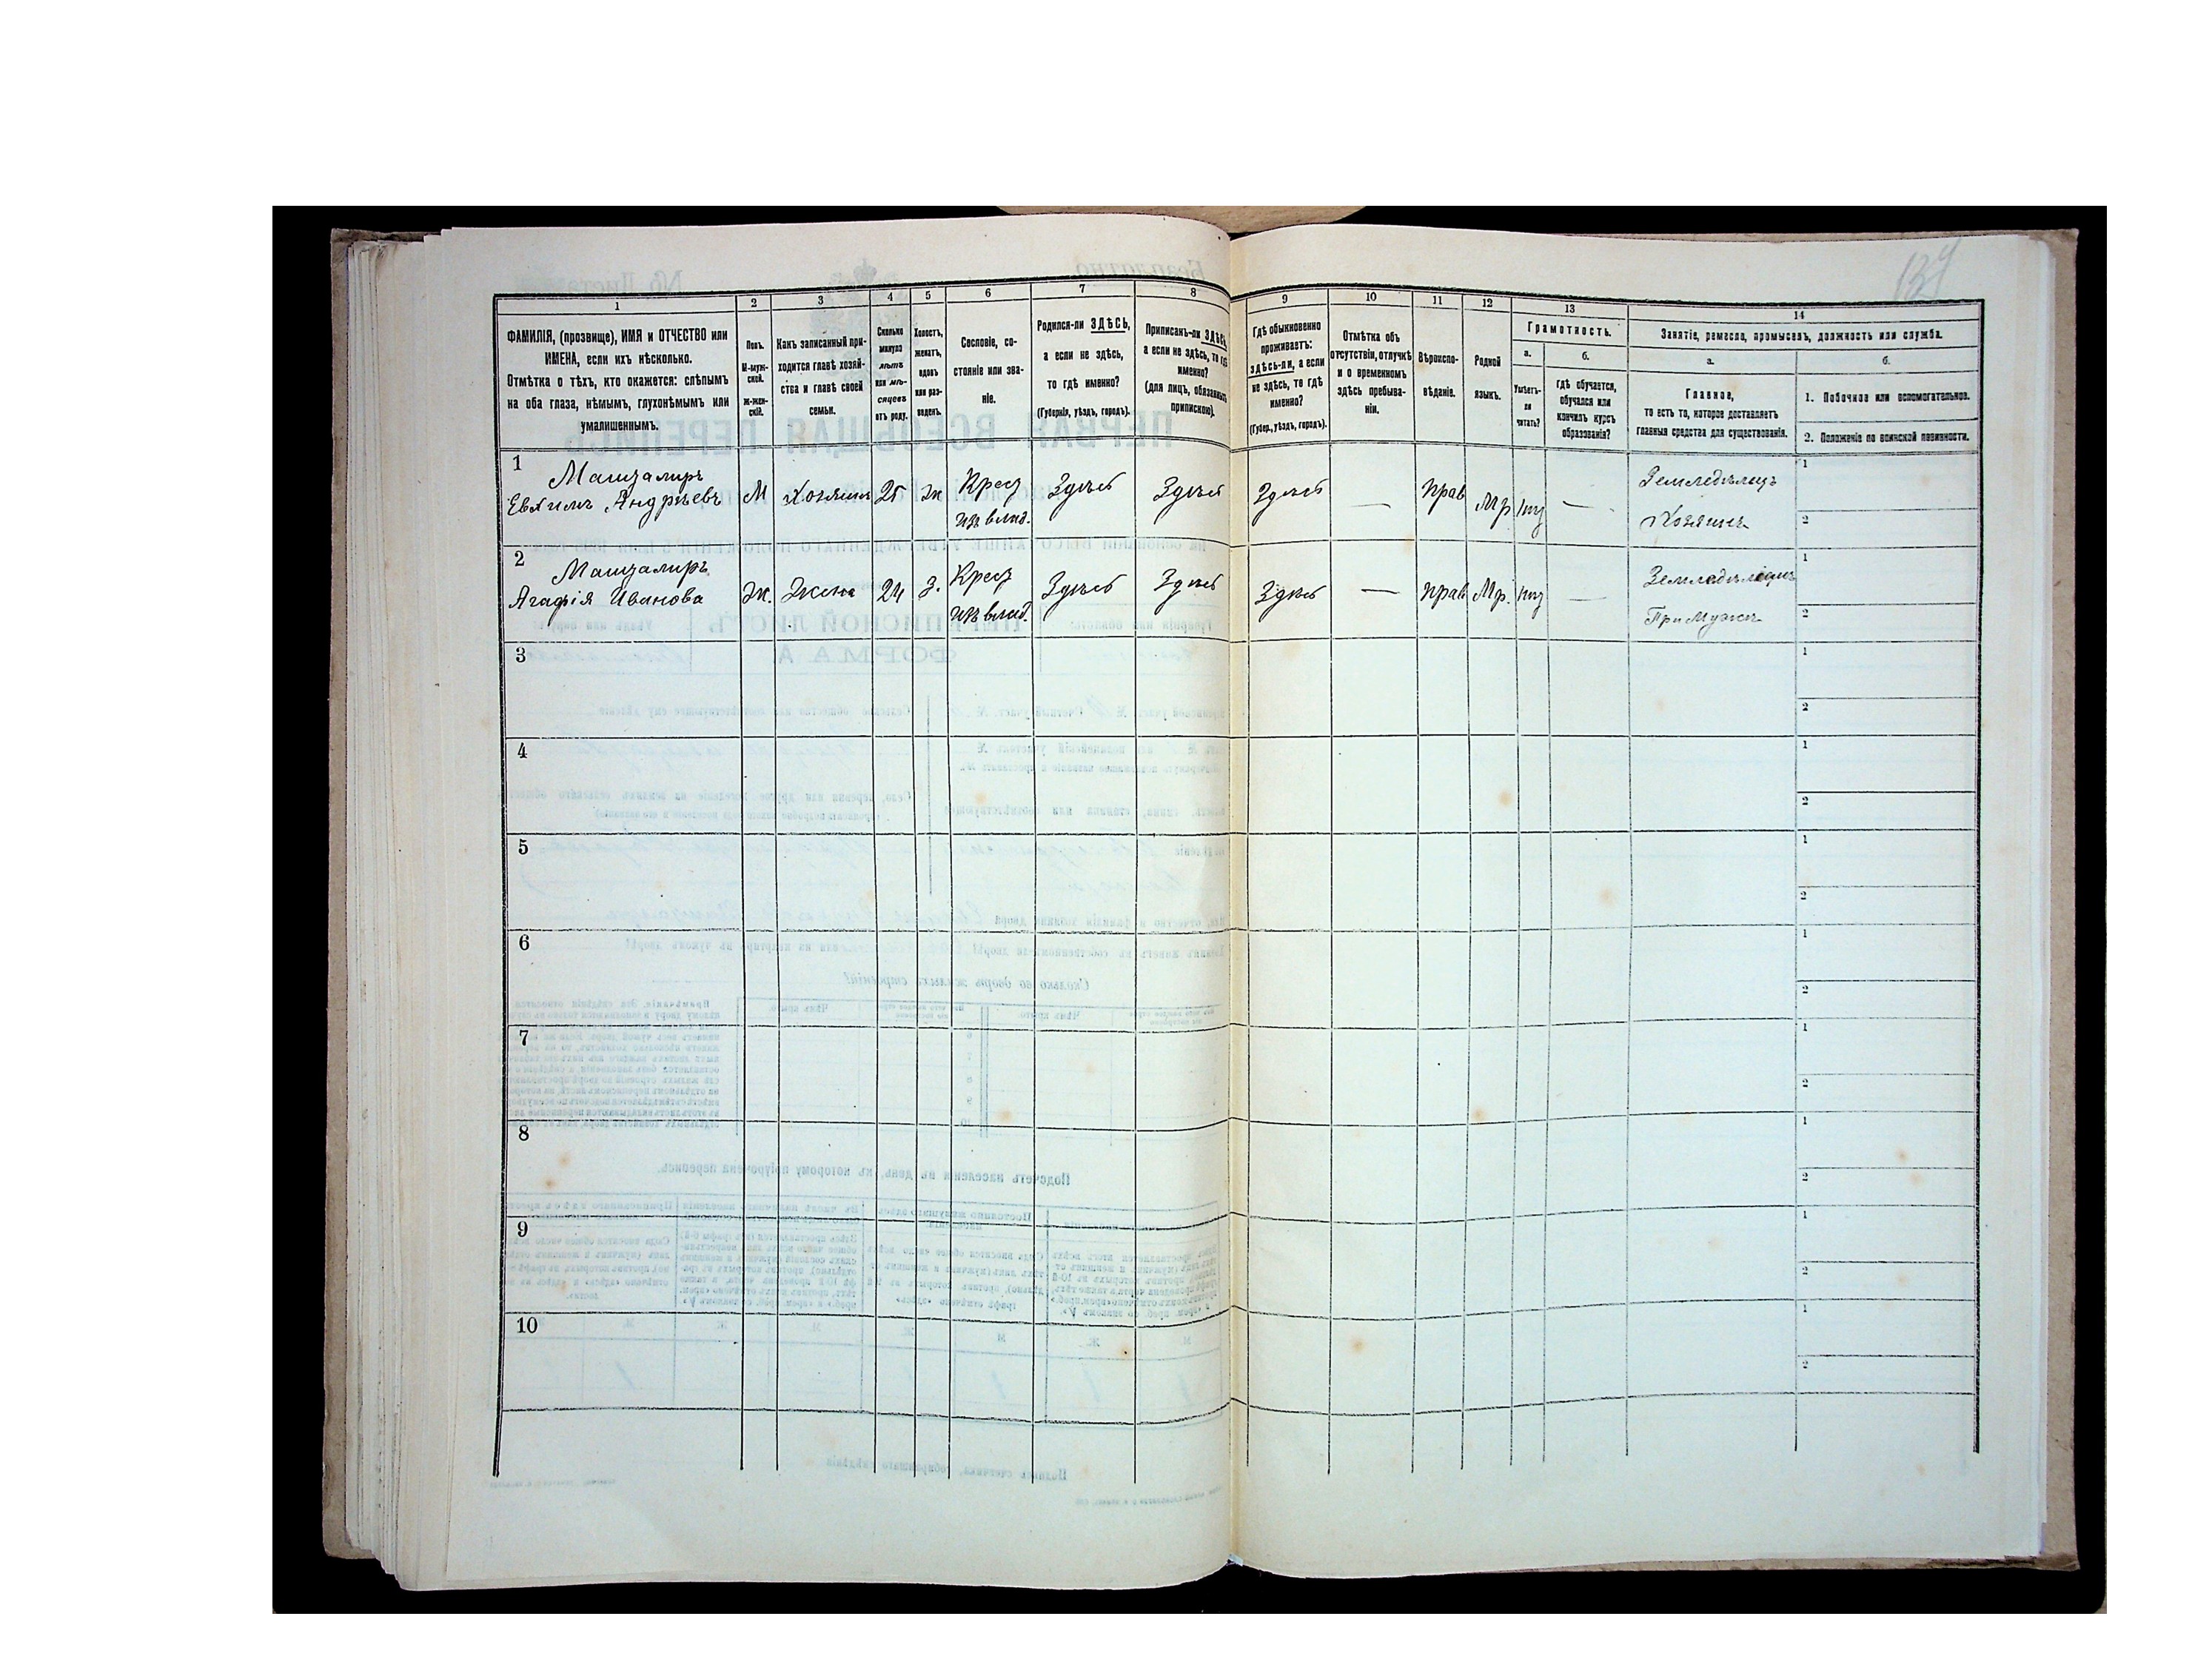 139
1
2
3
4
5
6
7
8
9
10
11
12
13
14
ФАМИЛІЯ, (прозвище), ИМЯ и ОТЧЕСТВО или
ИМЕНА, если ихъ нѣсколько.
Отмѣтка о тѣхъ, кто окажется: слѣпымъ
на оба глаза, нѣмымъ, глухонѣмымъ или
умалишеннымъ.
Полъ.
М-муж-
ской.
Ж-жен-
скій.
Какъ записанный при-
ходится главѣ хозяй-
ства и главѣ своей
семьи.
Сколько
минуло
лѣтъ
или мѣ-
сяцевъ
отъ роду.
Холостъ,
женатъ,
вдовъ
или раз-
веденъ.
Сословіе, со-
стояніе или зва-
ніе.
Родился-ли ЗДѢСЬ,
а если не здѣсь,
то гдѣ именно?
(Губернія, уѣздъ, городъ).
Приписанъ-ли ЗДѢСЬ,
а если не здѣсь, то гдѣ
именно?
(для лицъ, обязанныхъ
припискою).
Гдѣ обыкновенно
проживаетъ:
ЗДѢСЬ-ли, а если
не здѣсь, то гдѣ
именно?
(Губер., уѣздъ, городъ).
Отмѣтка объ
отсутствіи, отлучкѣ
и о временномъ
здѣсь пребыва-
ніи.
Вѣроиспо-
вѣданіе.
Родной
языкъ.
Грамотность.
а.
Умѣетъ-
ли
читать?
б.
Гдѣ обучается,
обучался или
кончилъ курсъ
образованія?
Занятіе, ремесло, промыселъ, должность или служба.
а.
Главное,
то есть то, которое доставляетъ
главныя средства для существованія.
б.
1. Побочное или вспомогательное.
2. Положеніе по воинской повинности.
1
Машталиръ
Евхимъ Андрѣевъ
М Хозяинъ 25 ж Крест Здѣсь Здѣсь Здѣсь — Прав Мр. нѣтъ — Земледѣлецъ
Хозяинъ
1
2
2
Машталиръ
Агафія Иванова
Ж. Жена 24 З. Крест Здѣсь Здѣсь Здѣсь — Прав Мр. нѣтъ —
При мужѣ
1
2
3
1
2
4
1
2
5
1
2
6
1
2
7
1
2
8
1
2
9
1
2
10
1
2